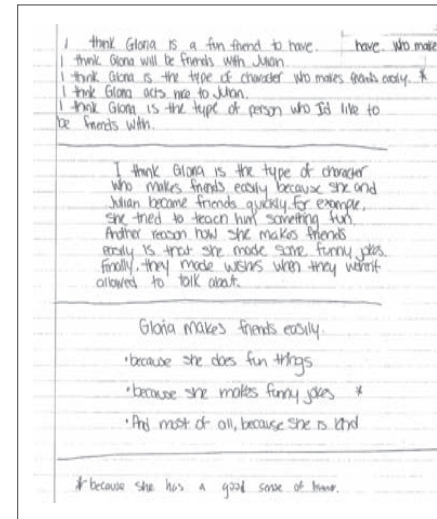 I think Gloria is a fun friend to have. have. Who make
I think Gloria will be friends with Julian.
I think Gloria is the type of character who makes friends easily. *
I think Gloria acts nice to Julian.
I think Gloria is the type of person who I'd like to
be friends with.
I think Gloria is the type of character
who makes friends easily because she and
Julian became friends quickly. For example,
she tried to teach him something fun.
Another reason how she makes friends
easily is that she made some funny jokes.
Finally, they made wishes when they weren't
allowed to talk about.
Gloria makes friends easily.
•because she does fun things
•because she makes funny jokes *
•And most of all, because she is kind
* because she has a good sense of